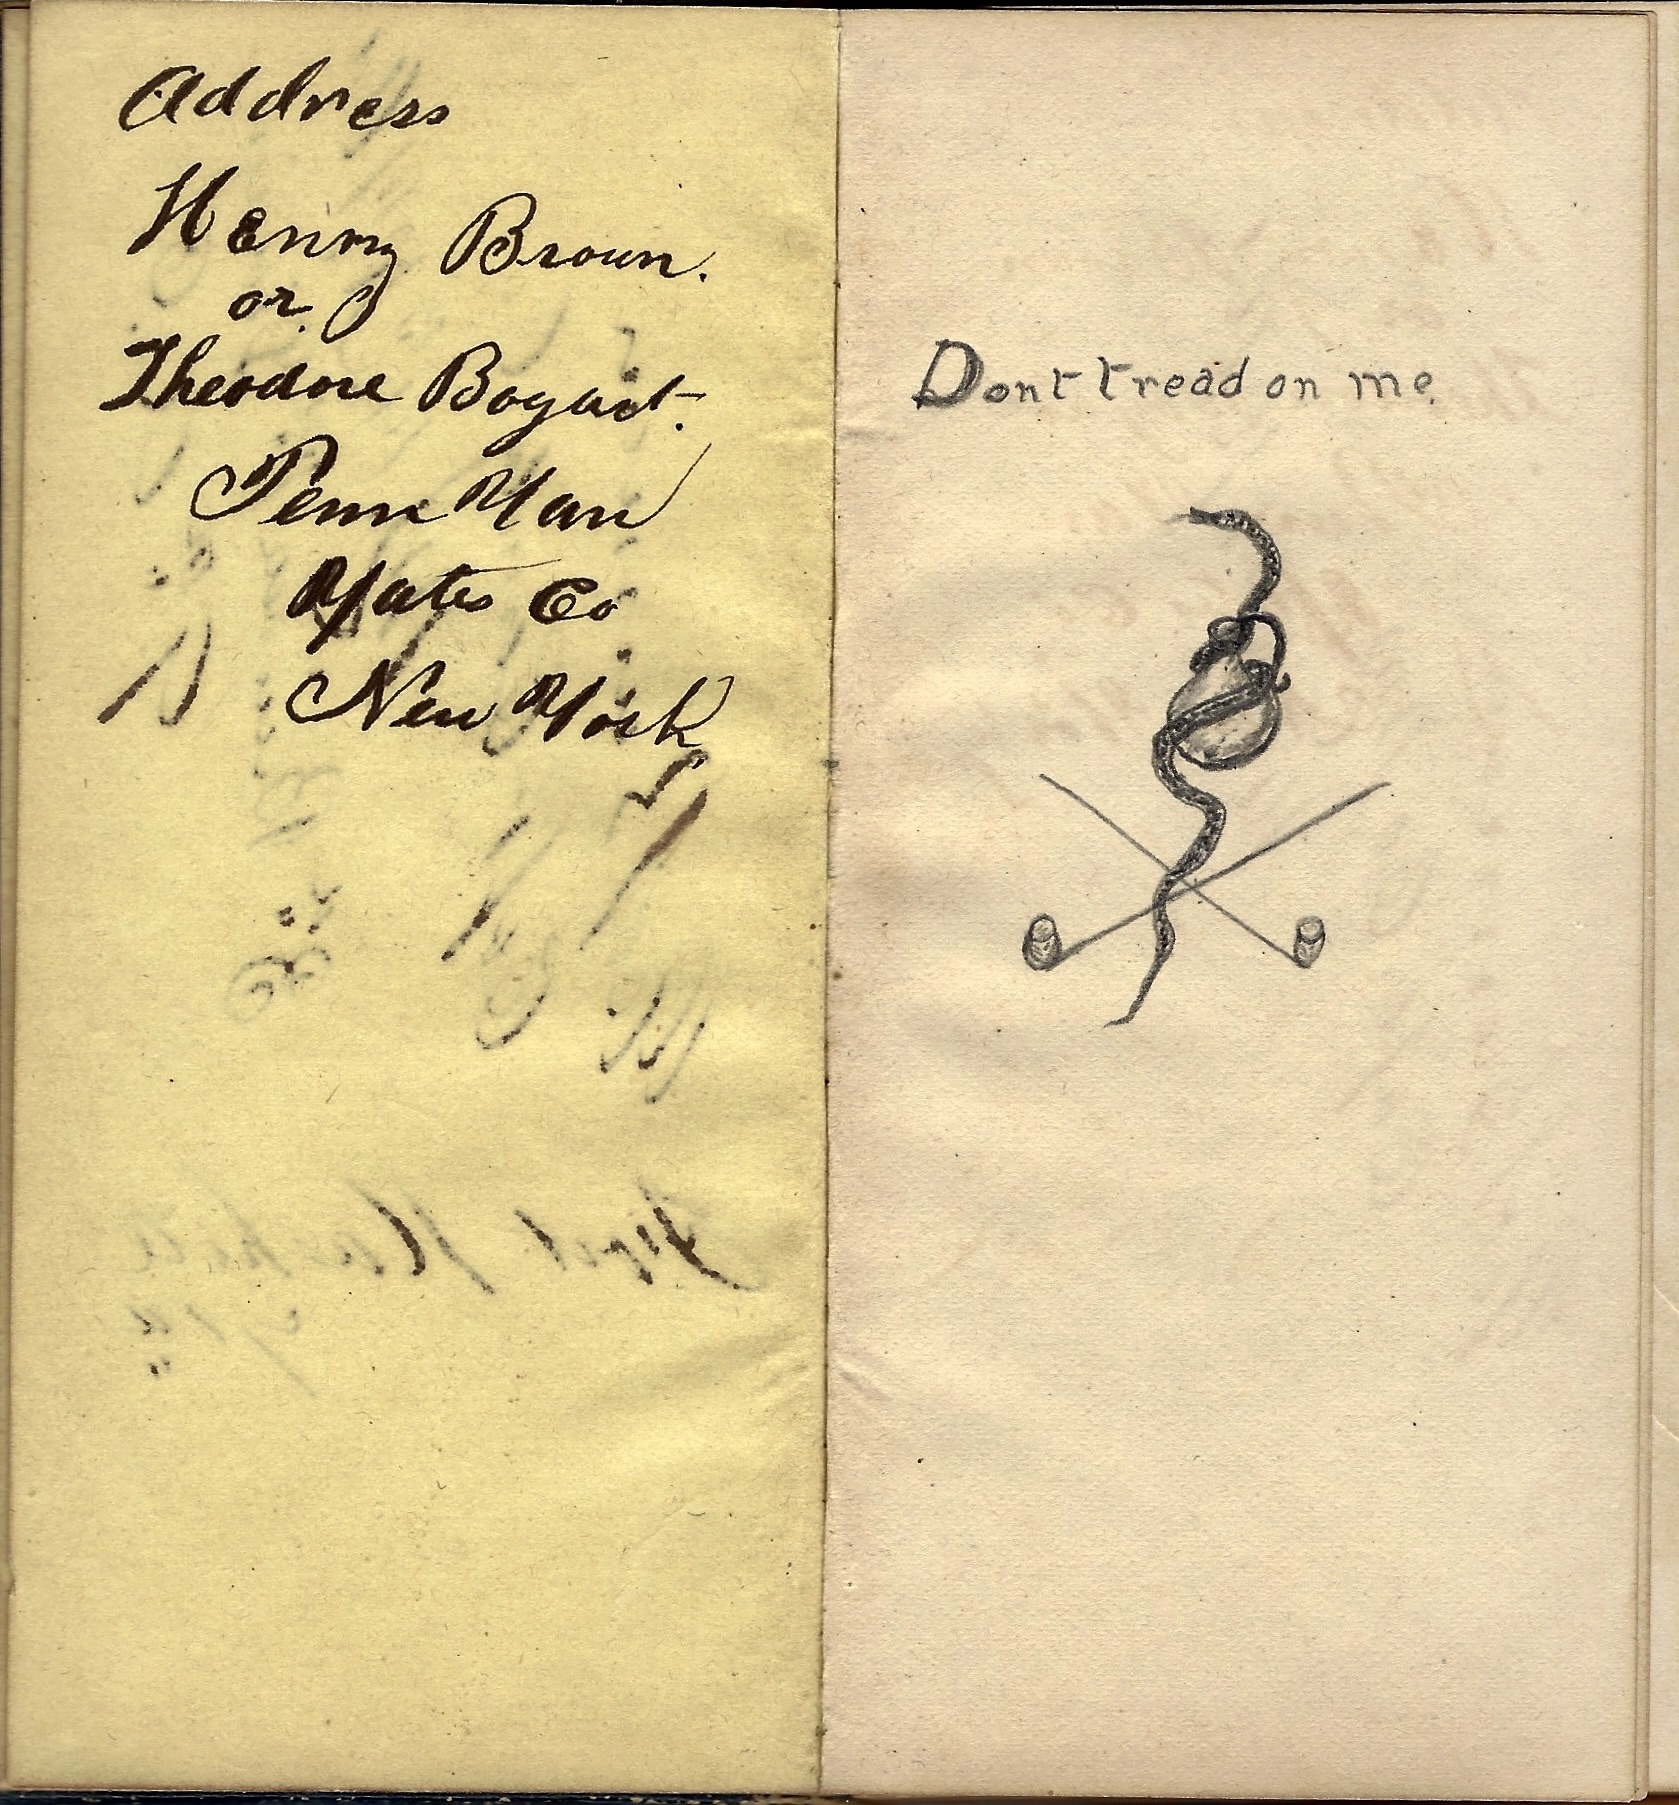 Address
Henry Brown.
or
Theodore Bogart.
Penn Yan
Yates Co
New York
Dont tread on me.